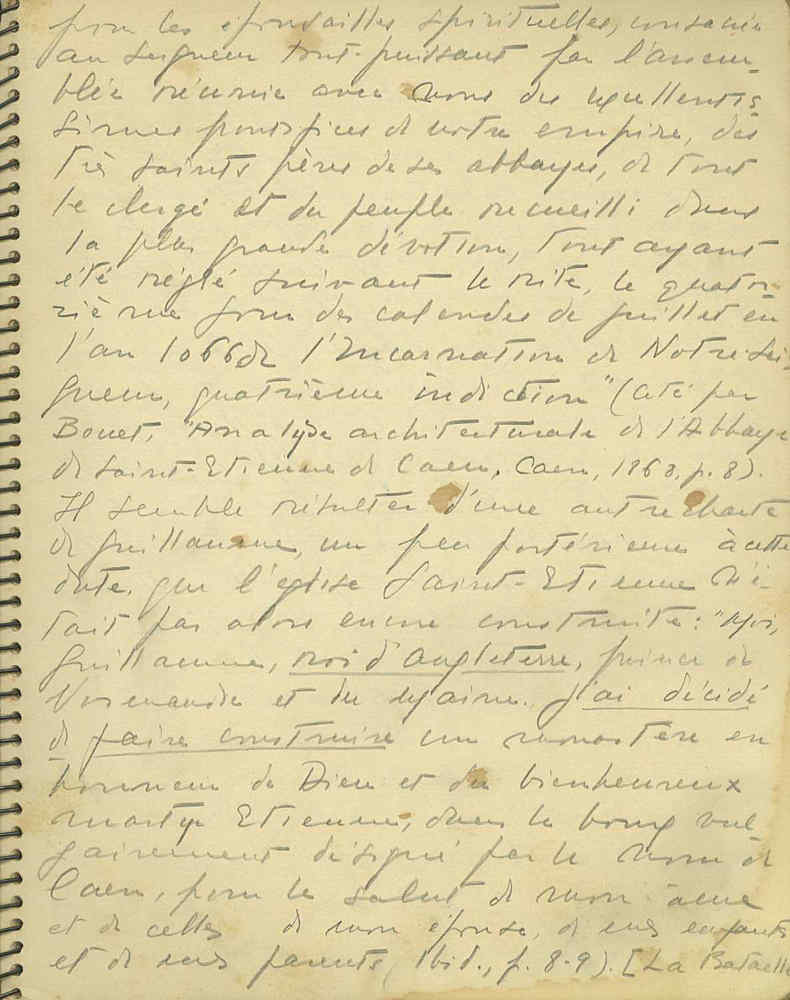 pour les épousailles spirituelles, consacrée
au Seigneur tout-puissant par l'assem-
blée réunie avec nous des excellentis-
simes pontifes de notre empire, des
très saints pères de ses abbayes, de tout
le clergé et du peuple recueilli dans
la plus grande dévotion, tout ayant
été réglé suivant le rite, le quator-
zième jour des calendes de juillet en
l'an 1066 de l'Incarnation de Notre-Sei-
gneur, quatrième indiction" (cité par
Bouet, "Analyse architecturale de l'Abbaye
de Saint-Etienne de Caen, Caen, 1868, p. 8).
Il semble résulter d'une autre charte
de Guillaume, un peu postérieure à cette
date, que l'église Saint-Etienne n'é-
tait pas alors encore construite: "Moi,
Guillaume, roi d'Angleterre, prince de
Normandie et du Maine. j'ai décidé
de faire construire un monastère en
honneur de Dieu et du bienheureux
martyr Etienne, dans le bourg vul-
gairement désigné par le nom de
Caen, pour le salut de mon âme
et de celles de mon épouse, de mes enfants
et de mes parents (Ibid., p. 8-9). [La Bataille